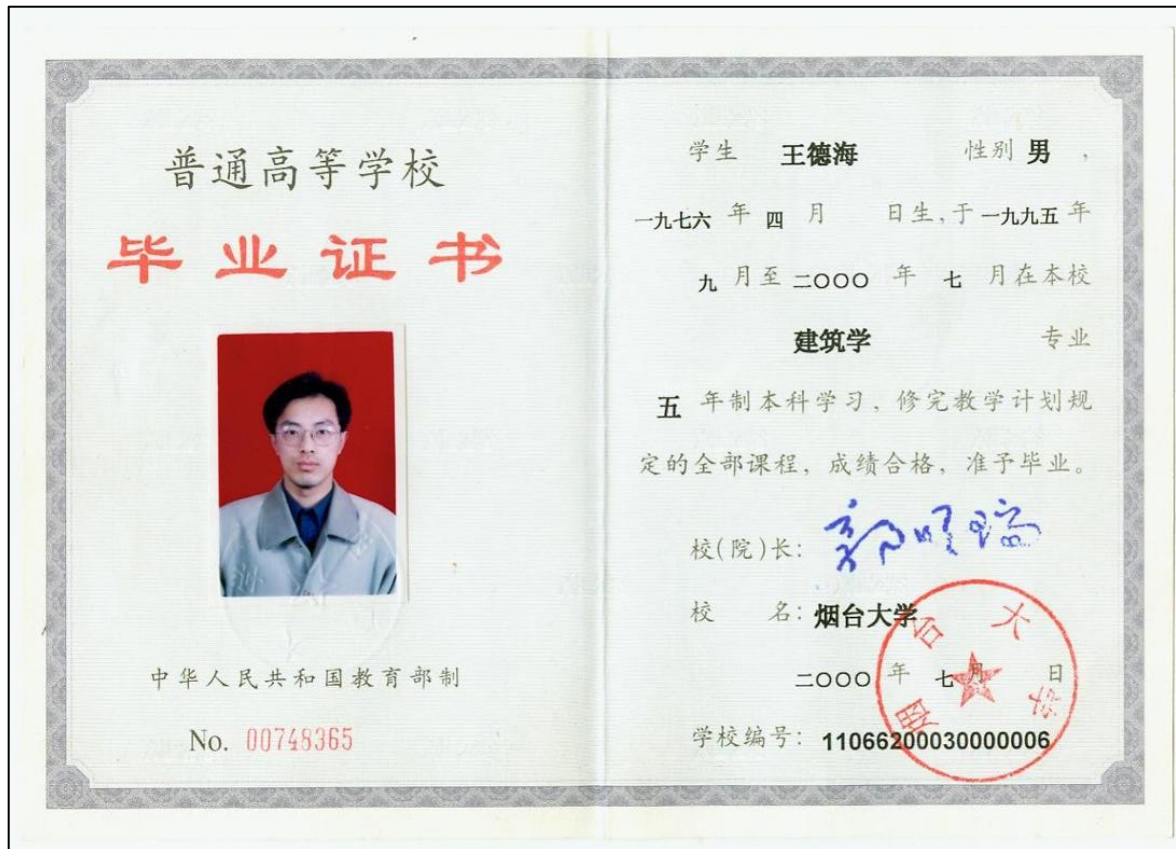 普通高等学校
毕业证书
中华人民共和国教育部制
No. 00748365
学生 王德海 性别 男，
一九七六 年 四 月 日生，于 一九九五 年
九 月至 二〇〇〇 年 七 月在本校
建筑学 专业
五 年制本科学习，修完教学计划规
定的全部课程，成绩合格，准予毕业。
校(院)长：
校 名：烟台大学
二〇〇〇 年 七 月 日
烟台大学
学校编号：11066200030000006